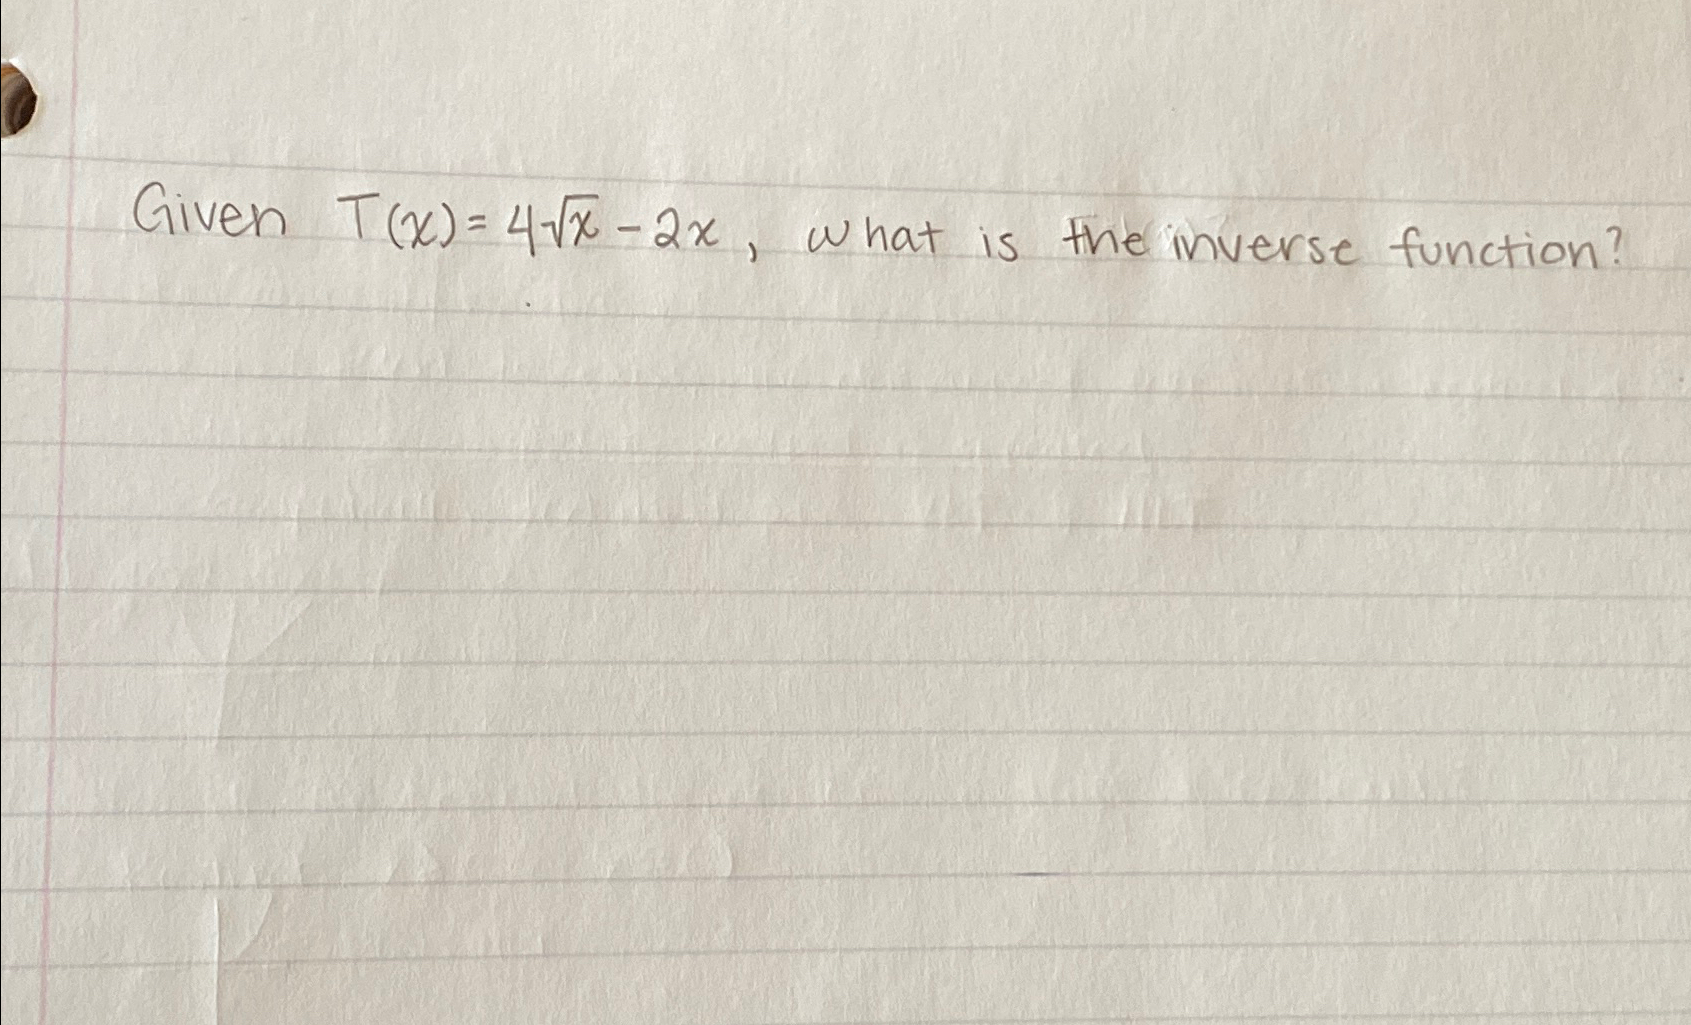 Given T(x) = 4√x - 2x, what is the inverse function?